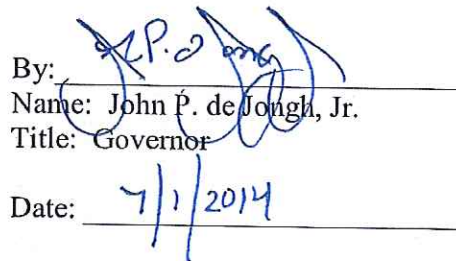 By:
Name: John P. de Jongh, Jr.
Title: Governor
Date: 7/1/2014